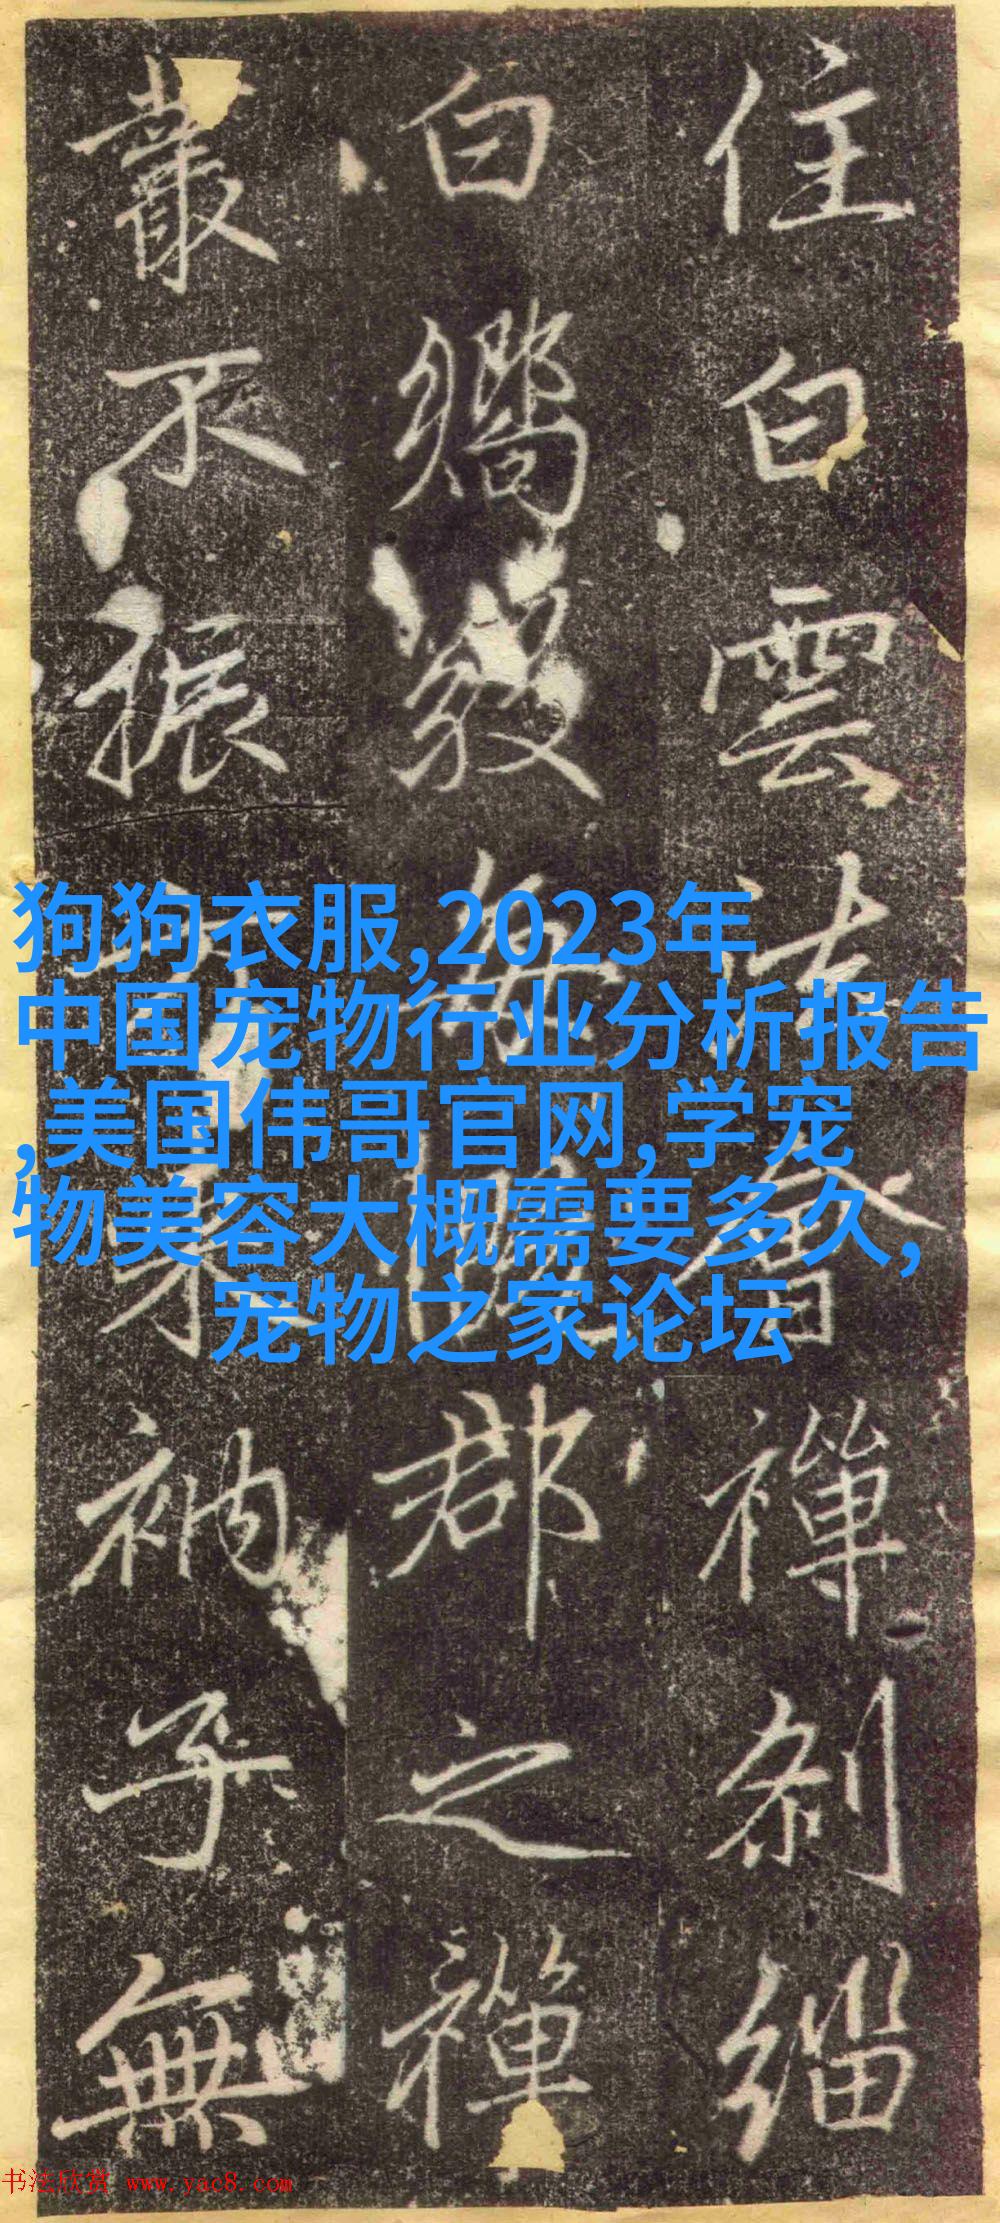 住白雲法會禪刹緇
白鸞毀每郡之禪
叢不振衲子無
狗狗衣服,2023年
中国宠物行业分析报告
,美国伟哥官网,学宠
物美容大概需要多久,
宠物之家论坛
书法欣赏 www.yac8.com